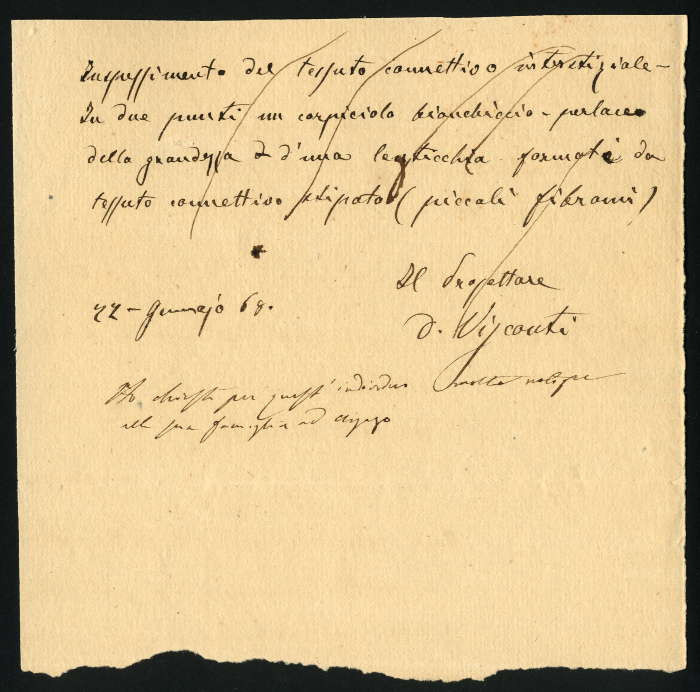 Inspessimento del tessuto connettivo interstiziale –
In due punti un corpiciolo bianchiccio – perlaceo
della grandezza d'una lenticchia formati da
tessuto connettivo stipato (piccoli fibromi)
Il Prosettore
22 – Gennajo 68.
D. Visconti
Ho chieste per quest' individuo molte
alla sua famiglia ad